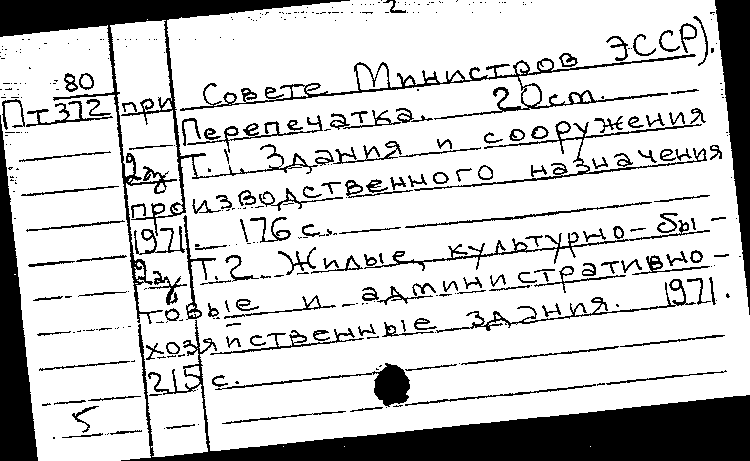 2
80
Пт 372 при Совете Министров ЭССР).
Перепечатка. 20 cm.
2 эк Т.1. Здания и сооружения
производственного назначения
1971. 176 с.
2 эк Т.2 Жилые, культурно-бы-
товые и административно-
хозяйственные здания. 1971.
215 с.
5